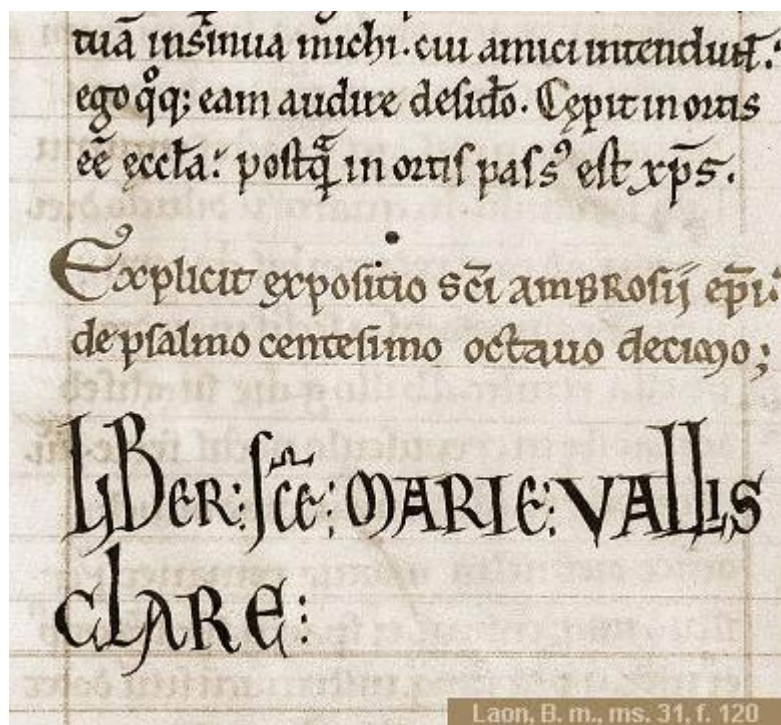 tuā insinua michi. cui amici intendunt.
ego q̊q; eam audire desid̄o. Cępit in ortis
eē ęccła. postq̄ in ortis pasſ᾿ est xp̄s.
Explicit expositio sc̄i ambrosij ep̄i.
de psalmo centesimo octauo decimo;
LIBER: sc̄e: MARIE: VALLIS
CLARE:
Laon, B. m., ms. 31, f. 120